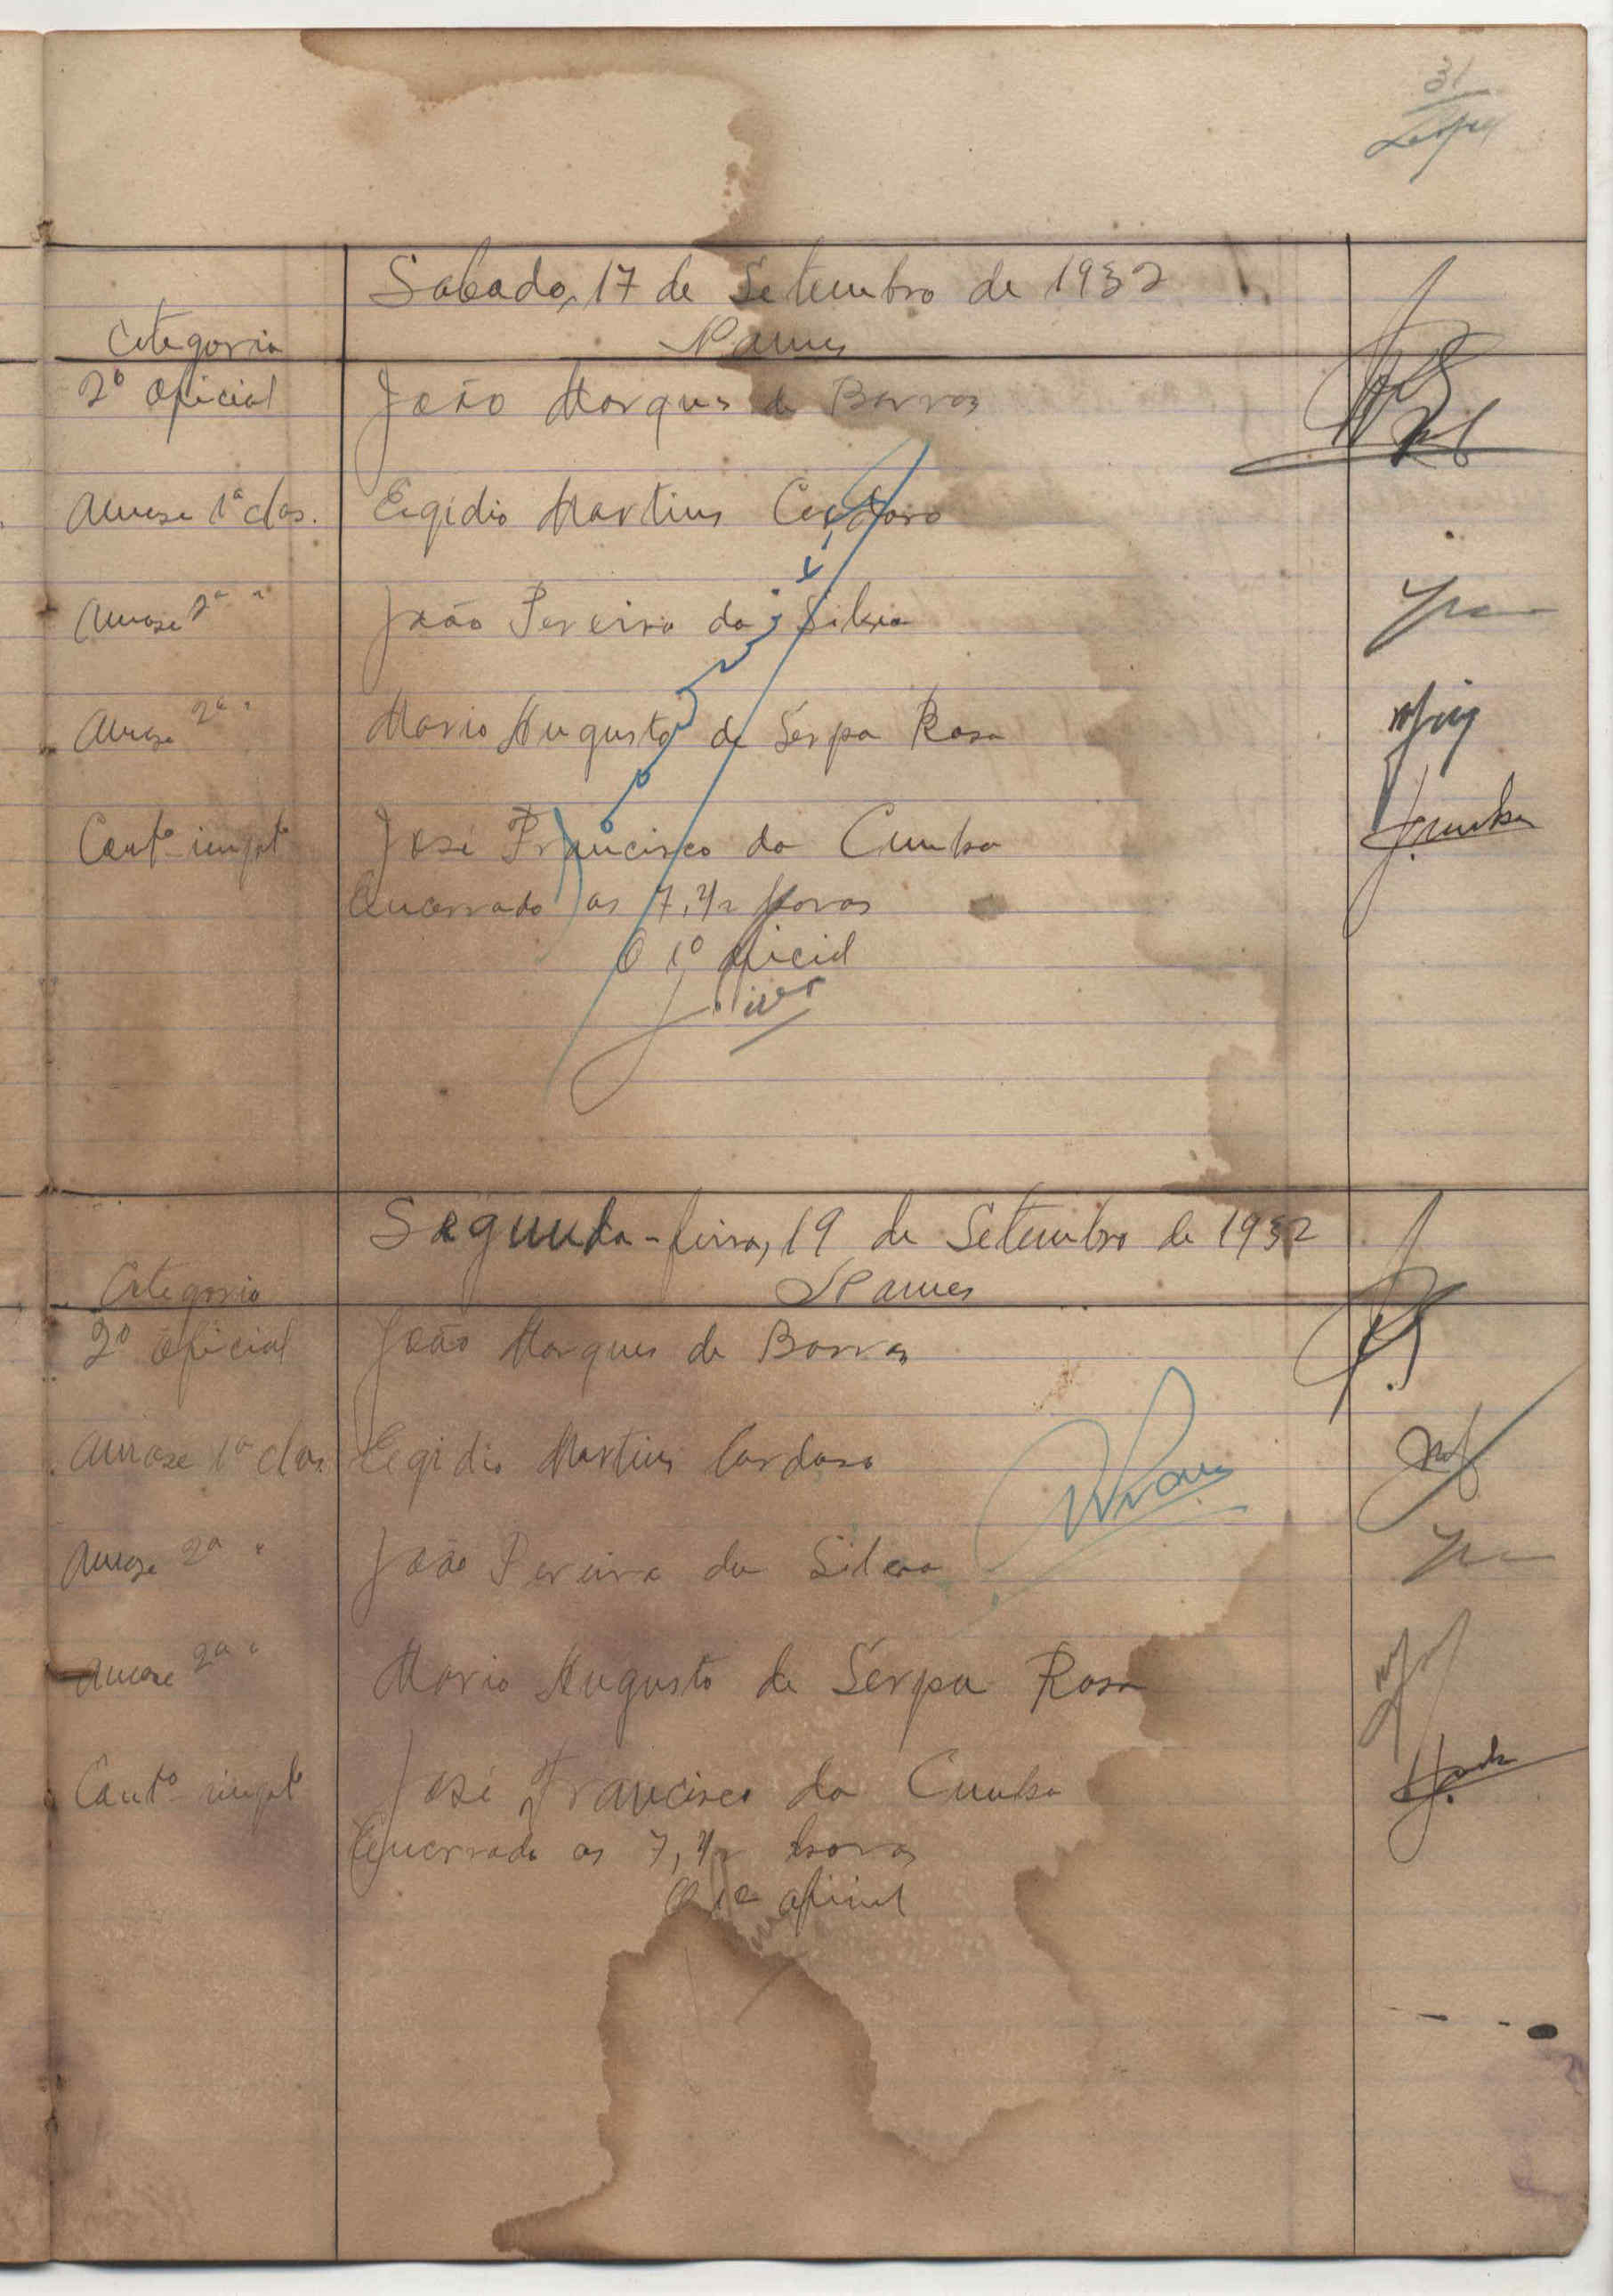 31
Sabado, 17 de Setembro de 1932
Categoria Nomes
2º oficial João Marques de Barros
1ª clas. Egidio Martins Cardoso
2ª " João Pereira da Silva
2ª " Mario Augusto de Serpa Rosa
Contº impt José Francisco da Cunha
Encerrado as 7,½ horas
O 1º oficial
Segunda-feira, 19 de Setembro de 1932
Categoria Nomes
2º oficial João Marques de Barros
1ª clas. Egidio Martins Cardoso
2ª " João Pereira da Silva
2ª " Mario Augusto de Serpa Rosa
Contº impt José Francisco da Cunha
Encerrado as 7,½ horas
O 1º oficial